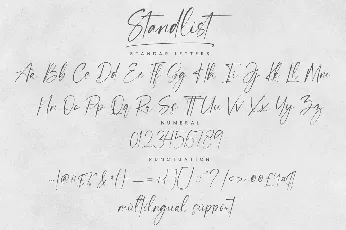 Standlist
STANDAR LETTERS
Aa Bb Cc Dd Ee Ff Gg Hh Ii Jj Kk Ll Mm
Nn Oo Pp Qq Rr Ss Tt Uu Vv Xx Yy Zz
NUMERAL
0123456789
PUNCTUATION
multilingual support